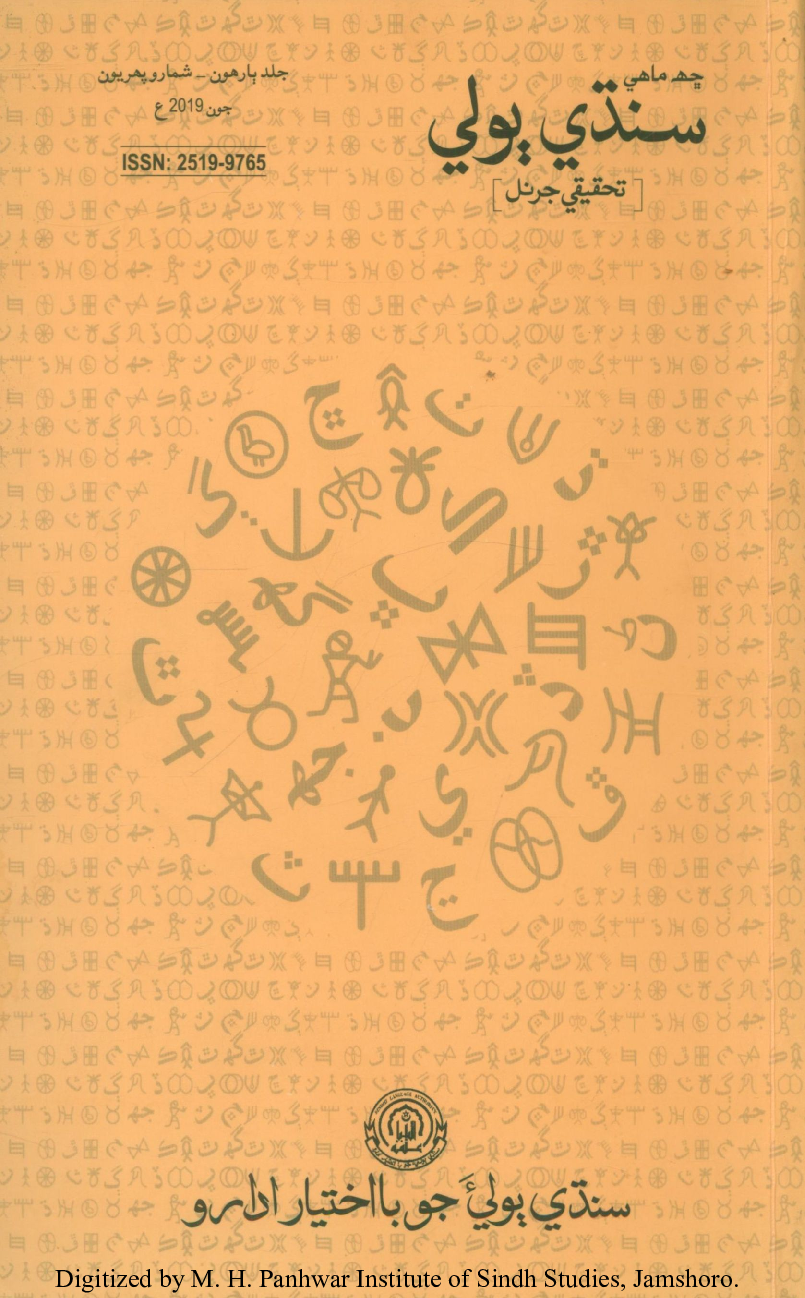 ڇهه ماهي
سنڌي ٻولي
[تحقيقي جرنل]
جلد ٻارهون – شمارو پهريون
جون 2019 ع
ISSN: 2519-9765
سنڌي ٻوليءَ جو بااختيار ادارو
Digitized by M. H. Panhwar Institute of Sindh Studies, Jamshoro.